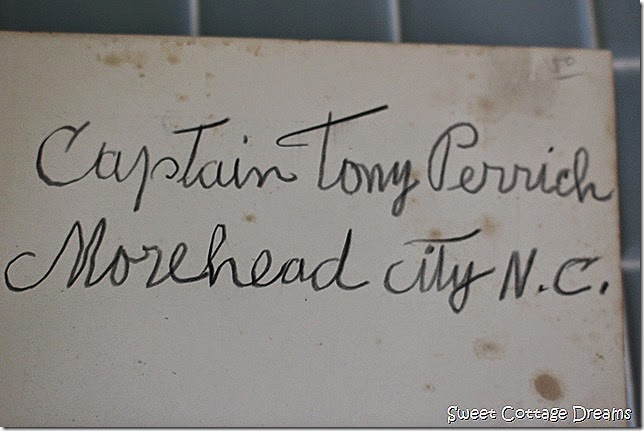 50
Captain Tony Perrich
Morehead city N.C.
Sweet Cottage Dreams